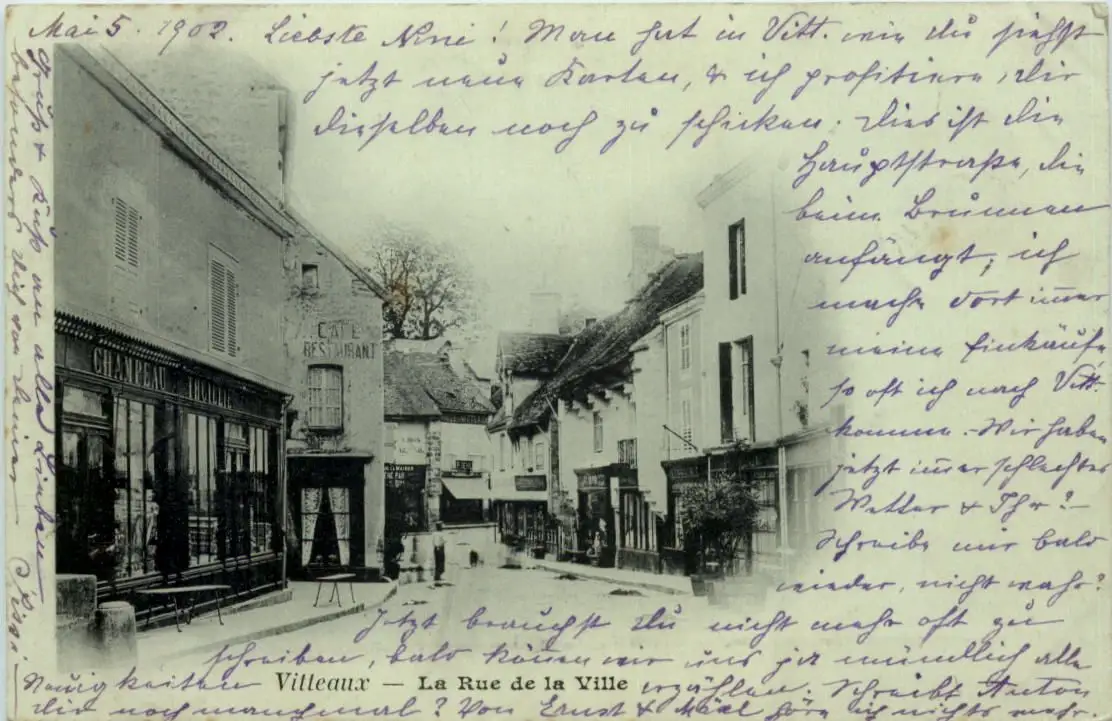 Mai 5. 1902. Liebste Nini! Man hat in Vitt. wie du siehst
jetzt neue Karten, & ich profitiere, dir
dieselben noch zu schicken. Dies ist die
Hauptstraße, die
beim Brunnen
anfängt; ich
mache dort im̅er
meine Einkäufe,
so oft ich nach Vitt.
komme. - Wir haben
jetzt im̅er schlechtes
Wetter & Ihr? -
Schreibe mir bald
wieder, nicht wahr?
Jetzt brauchst du nicht mehr oft zu
schreiben, bald kön̅en wir uns ja mündlich alle
Neuigkeiten erzählen. Schreibt Anton
dir noch manchmal? Von Ernst & höre ich nichts mehr.
Gruß & Kuß an alle Lieben
besonders dich von deiner
CHANPEAU TUILLIE
CAFÉ
RESTAURANT
Vitteaux — La Rue de la Ville